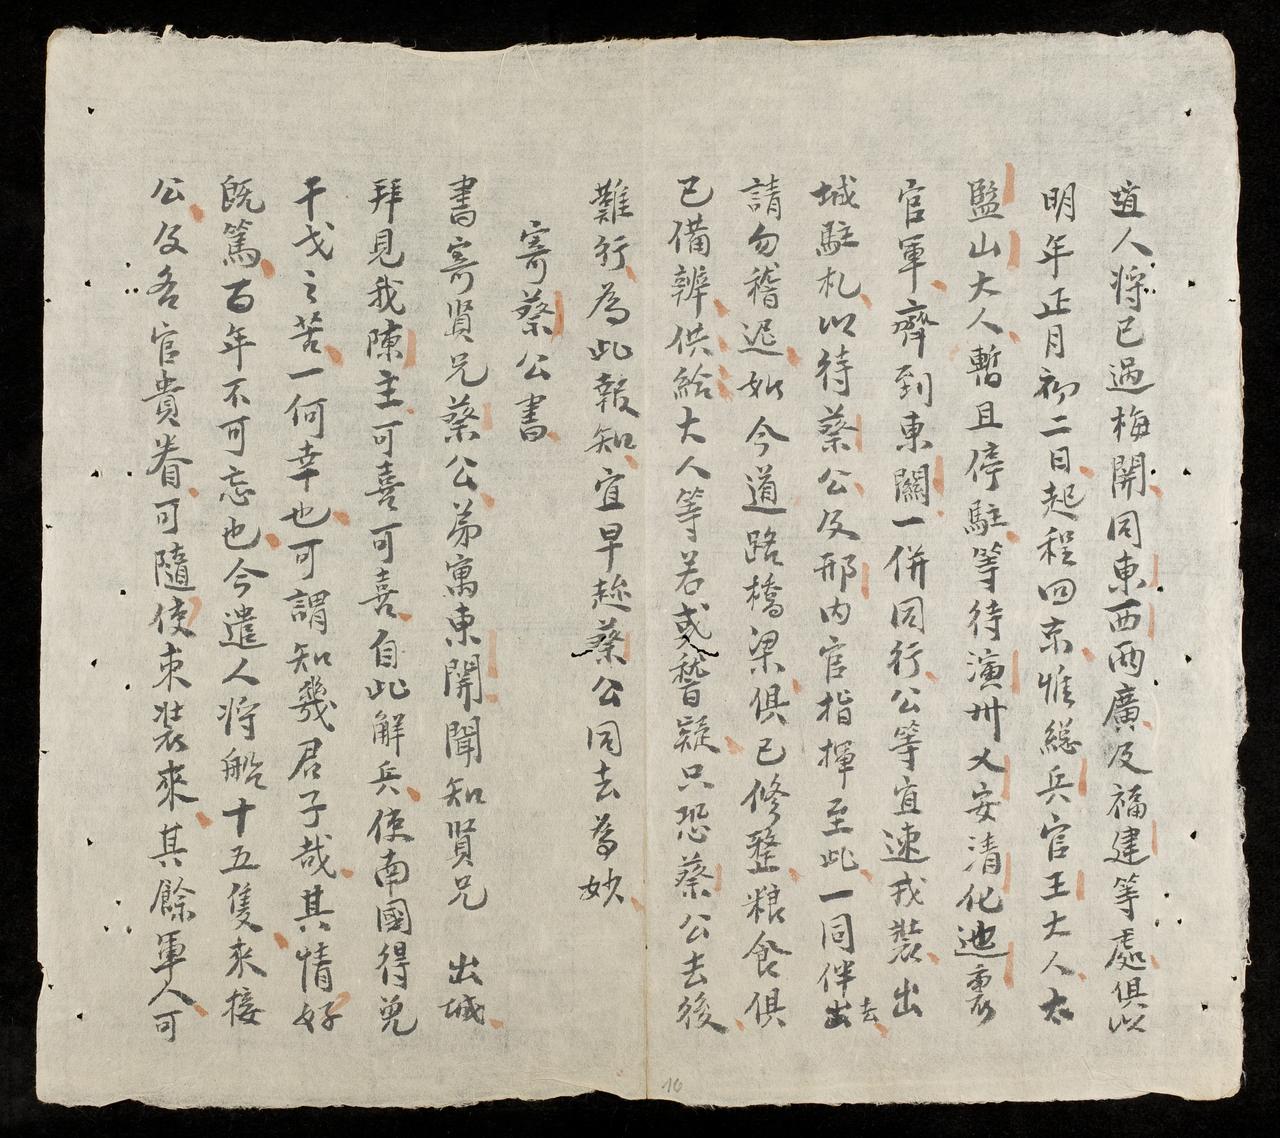 道人将已過梅関同東西兩廣及福建等處俱以
明年正月初二日起程回京惟総兵官王大人太
監山大人暫且停駐等待演州乂安清化迤裏
官軍齊到東關一併同行公等宜速戎裝出
城駐札以待蔡公及邢内官指揮至此一同伴出去
請勿稽迟如今道路橋梁俱已修整粮食俱
已備辨供給大人等若或稽疑只恐蔡公去後
難行為此報知宜早趂蔡公同去為妙
寄蔡公書
書寄賢兄蔡公弟寓東関聞知賢兄出城
拜見我陳主可喜可喜自此解兵使南國得免
干戈之苦一何幸也可謂知幾君子哉其情好
既篤百年不可忘也今遣人将船十五隻來接
公及各官貴眷可隨使束裝來其餘軍人可
16